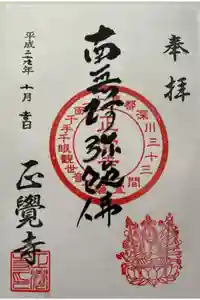 奉拝
深川三十三間
千手千眼観世音
南無阿弥陀佛
平成二七年 十月 吉日
正覺寺